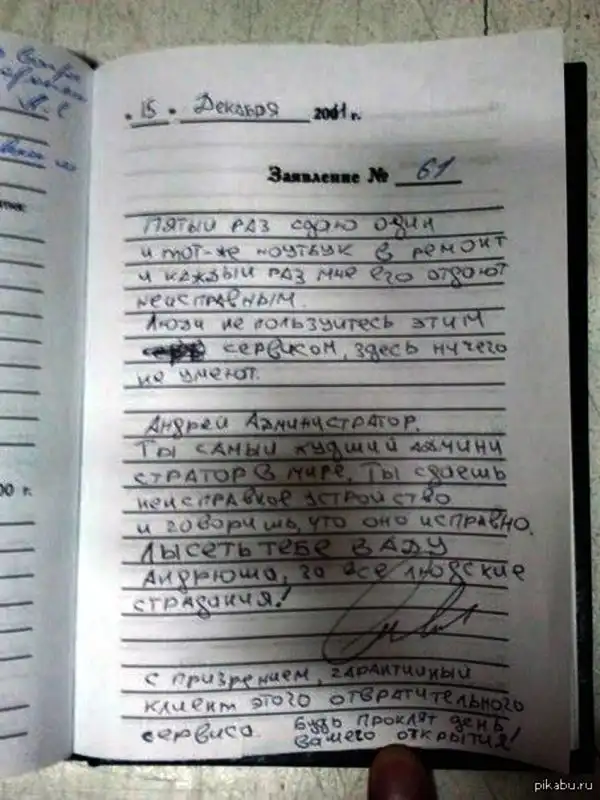 "15" Декабря 2011 г.
Заявление № 61
Пятый раз сдаю один
и тот-же ноутбук в ремонт
и каждый раз мне его отдают
неисправным.
Люди не пользуйтесь этим
сервисом, здесь ничего
не умеют.
Андрей Администратор.
Ты самый худший админи
стратор в мире. Ты сдаешь
неисправное устройство
и говоришь, что оно исправно.
Лысеть тебе в аду
Андрюша, за все людские
страдания!
с призрением, гарантийный
клиент этого отвратительного
сервиса. Будь проклят день
вашего открытия!
00 г.
pikabu.ru